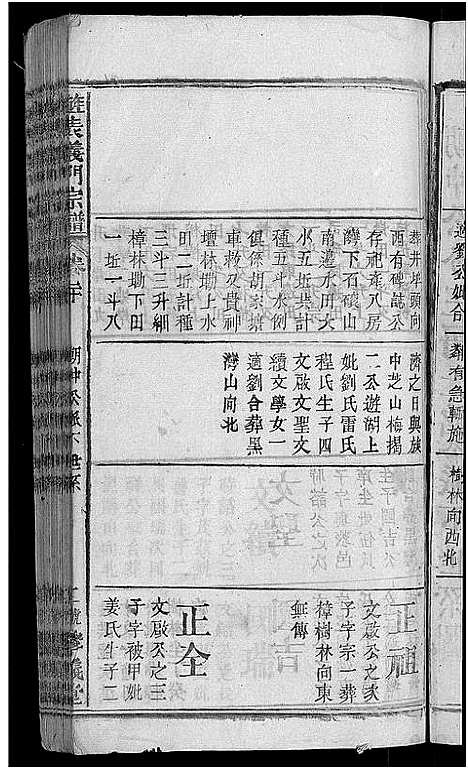 葬井坤頭向
西有碑誌公
存祀產八房
灣下石礤山
南邊水田大
小五坵共計
種五斗水倒
俱係胡家塘
車救又貴神
壇林坳上水
田二坵計種
三斗三升細
樟林坳下田
一坵一斗八
濟之日與族
中芝山梅揭
二公遊湖上
妣劉氏雷氏
程氏生子四
文啟文聖文
續文學女一
適劉合葬黑
灣山向北
正祖
文啟公之家
子字宗一葬
樟樹林向東
缺傳
正全
文啟公之三
子字被甲妣
姜氏生子二
義門宗譜
適劉公妣合
葬有急轉施
樹林向西北